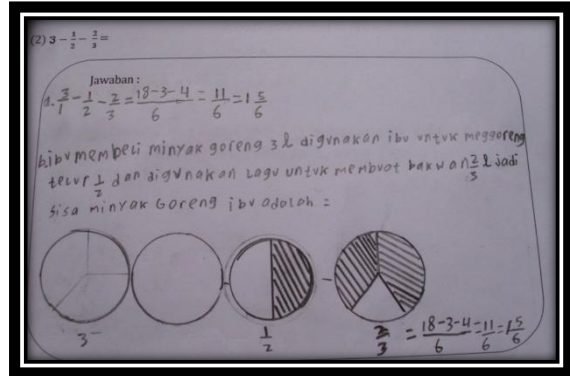 (2) 3 - 1/2 - 2/3 =
Jawaban :
a. 3/1 - 1/2 - 2/3 = 18-3-4/6 = 11/6 = 1 5/6
b. ibu membeli minyak goreng 3 l digunakan ibu untuk meggoreng
telur 1/2 dan digunakan Lagu untuk membuat bakwan 2/3 l jadi
sisa minyak Goreng ibu adalah =
- -
3 - 1/2 2/3 = 18-3-4/6 = 11/6 = 1 5/6